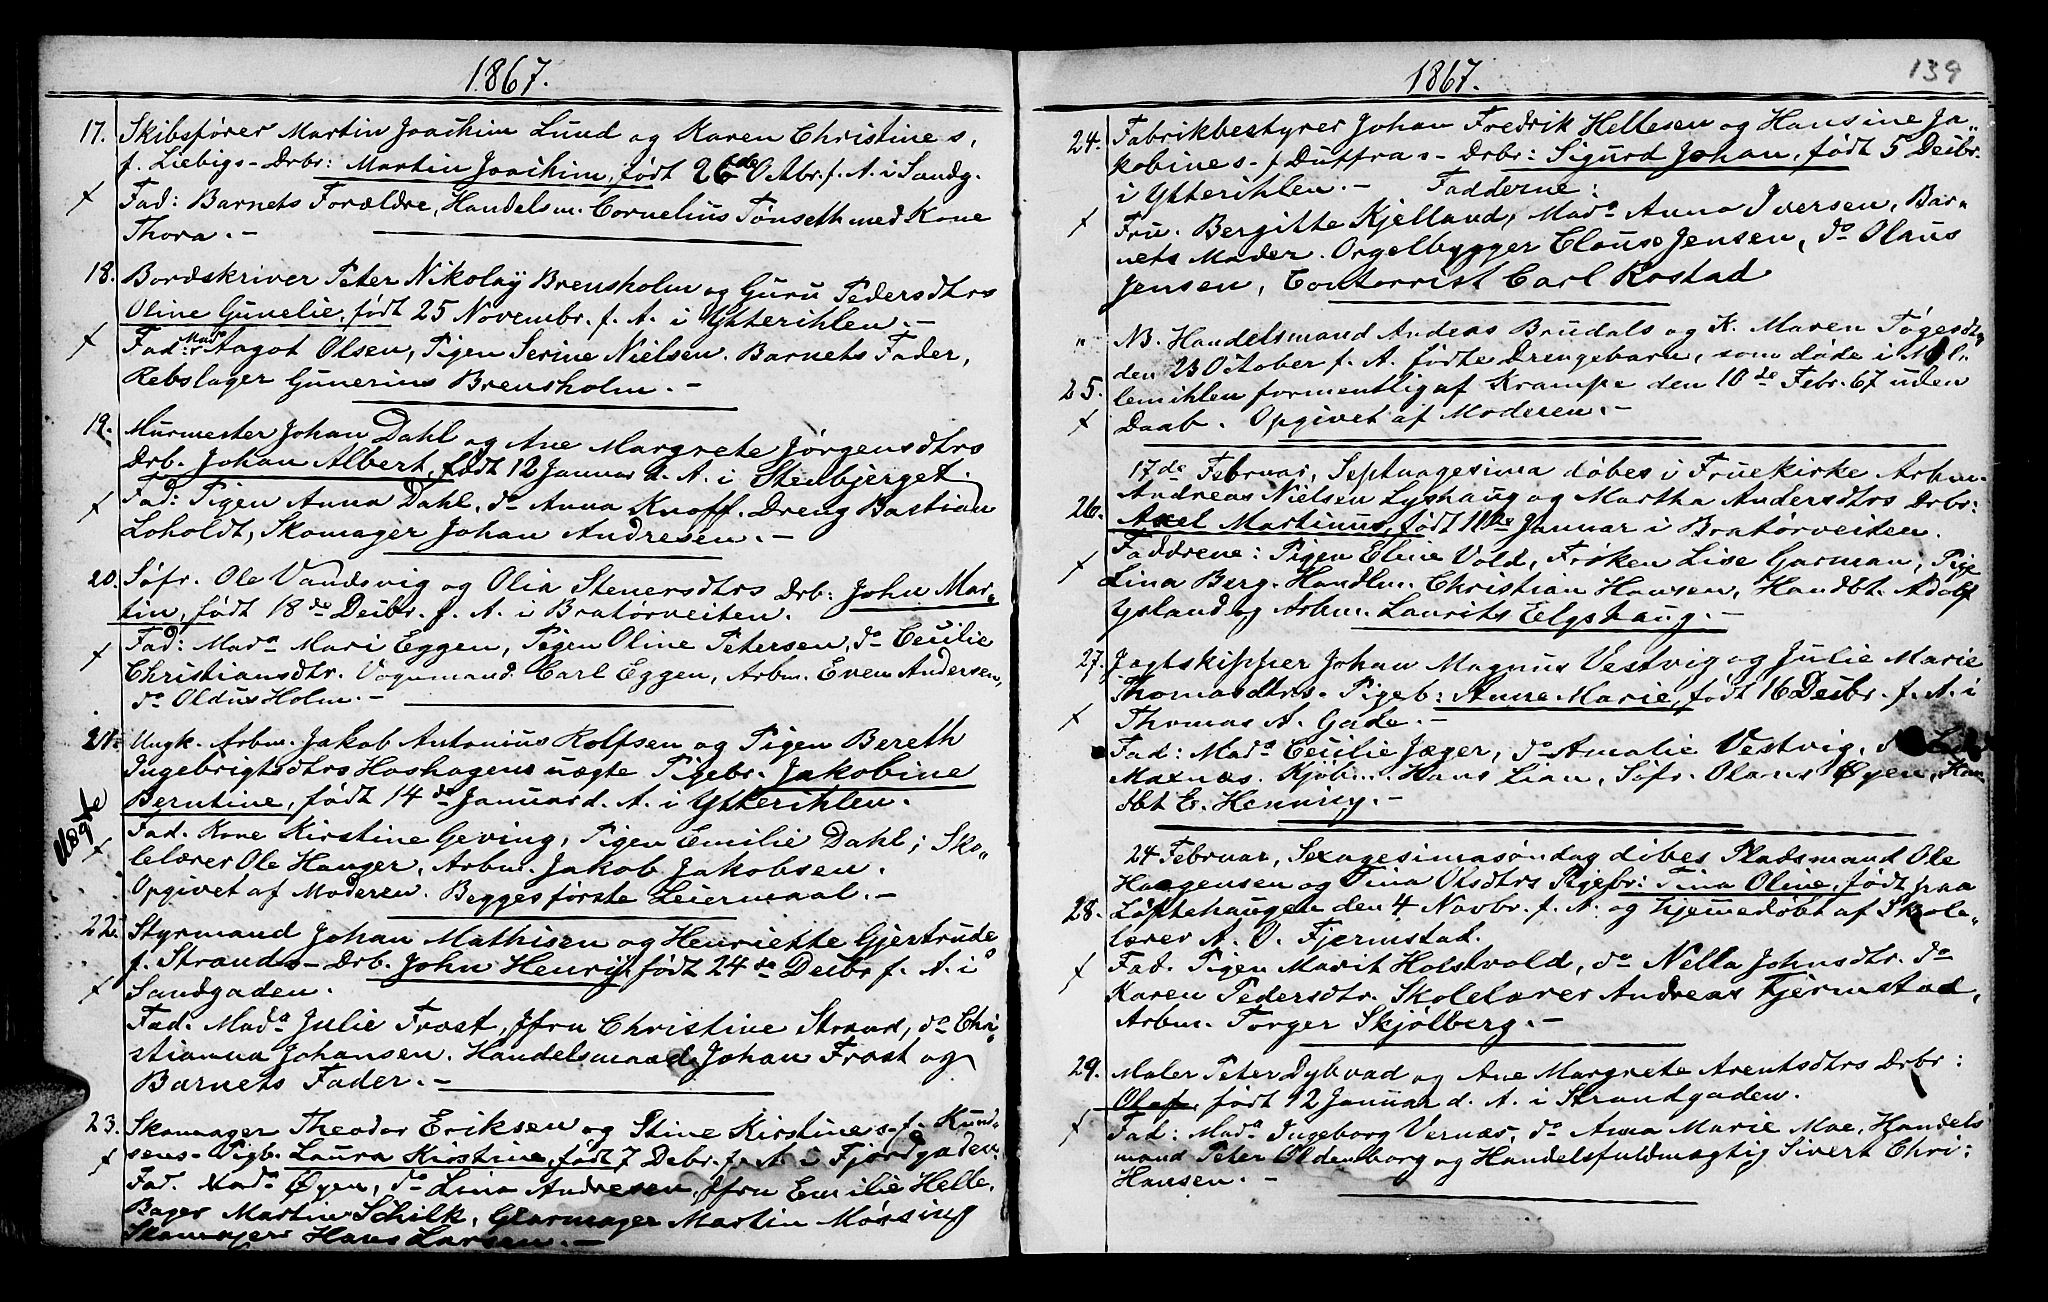 1867.
17. Skibsfører Martin Joachim Lund og Karen Christine s,
f. Liebigs - Drbr: Martin Joachim, født 26de Octbr. f. A. i Sandg.
Fad: Barnets Forældre, Handelsm. Cornelius Tønseth med Kone
Thora. -
18. Bordskriver Peter Nikolaÿ Brensholm og Guru Pedersdtrs
Oline Gunelie, født 25 Novembr. f. A. i Ytterihlen. -
Fad: Mada Aagot Olsen, Pigen Serine Nielsen. Barnets Fader,
Rebslager Gunerius Brensholm. -
19. Murmester Johan Dahl og Ane Margrete Jørgensdtrs
Drb. Johan Albert, født 12 Januar d. A. i Stenbjerget.
Fad: Pigen Anna Dahl, do Anna Knoff. Dreng Bastian
Loholdt, Skomager Johan Andresen. -
20. Søfr. Ole Vandsvig og Olia Stenersdtrs Drb: John Mar„
tin, født 18de Decbr. f. A. i Bratørveiten.
Fad: Mada Mari Eggen, Pigen Oline Petersen, do Cecilie
Christiansdtr. Vognmand Carl Eggen, Arbm. Even Andersen,
do Oldus Holm. -
21. Ungk. Arbm. Jakob Antonius Rolfsen og Pigen Bereth
Ingebrigtsdtrs Hoshagens uægte Pigebr. Jakobine
Berntine, født 14de Januar d. A. i Ytterihlen.
Uægte
Fad. Kone Kirstine Geving, Pigen Emilie Dahl, Sko„
lelærer Ole Hanger, Arbm. Jakob Jakobsen.
Opgivet af Moderen. Begges første Leiermaal. -
22. Styrmand Johan Mathisen og Henriette Gjertrude
f. Strands - Drb. John Henrÿ, født 24de Decbr f. A. i
Sandgaden.
Fad. Mada Julie Frost, Jfru Christine Strand, do Chri„
stianna Johansen. Handelsmand Johan Frost og
Barnets Fader. -
23. Skomager Theodor Eriksen og Stine Kirstine s - f. Knud„
sens - Pigb. Laura Kirstine, født 7 Debr. f. A. i Fjordgaden.
Fad. Mada Øyen, do Lina Andresen, Jfru Emilie Helle.
Bager Martin Schilk, Glarmager Martin Møssing
Skomager Hans Larsen. -
1867.
139
24. Fabrikbestyrer Johan Fredrik Hellesen og Hansine Ja„
kobine s - f Duffra s - Drbr: Sigurd Johan, født 5 Decbr.
i Ytterihlen. - Fadderne:
Fru. Bergitte Kjelland, Mada Anna Iversen, Bar„
nets Moder. Orgelbygger Clause Jensen, do Olaus
Jensen, Contorrist Carl Rostad
„ NB. Handelsmand Andeas Brudals og K. Maren Tøgesdtrs
den 23 October f. A. fødte Drengebarn, som døde i Mel„
25. lemihlen formentlig af Krampe den 10de Febr. 67 uden
Daab. Opgivet af Moderen. -
17de Februar, Septuagesima døbes i Fruekirke Arbm.
Andreas Nielsen Lyshaug og Martha Andersdtrs Drbr:
26. Axel Martinus, født 11te Januar i Bratørveiten.
Faddrene: Pigen Eline Vold, Frøken Lise Garman, Pige
Lina Berg. Handlm. Christian Hansen, Handbt. Adolf
Ysland og Arbm. Laurits Elgshaug. -
27. Jagtskipper Johan Magnus Vestvig og Julie Marie
Thomasdtrs. Pigeb: Anne Marie, født 16 Decbr. f. A. i
Thomas A. Gade. -
Fad: Mada Cecilie Jæger, do Amalie Vestvig, do
Maxnæs. Kjøbm. Hans Lian, Søfr. Olaus Øyen, Han
dbt E. Henning. -
24 Februar, Sexagesimasøndag døbes Pladsmand Ole
Haagensen og Tina Olsdtrs Pigebr: Tina Oline, født paa
28. Løftehaugen den 4 Novbr. f. A. og hjemedøbt af Skole„
lærer A. O. Fjermstad.
Fad. Pigen Marit Holstvold, do Nella Johnsdtr. do
Karen Pedersdtr. Skolelærer Andreas Fjermstad,
Arbm. Torger Skjølberg. -
29. Maler Peter Dybvad og Ane Margrete Arentsdtrs Drbr:
Olaf, født 12 Januar d. A. i Strandgaden.
Fad: Mada Ingeborg Vernæs, do Anna Marie Moe, Handels
mand Peter Oldenborg og Handelsfuldmægtig Sivert Chri:
Hansen. -